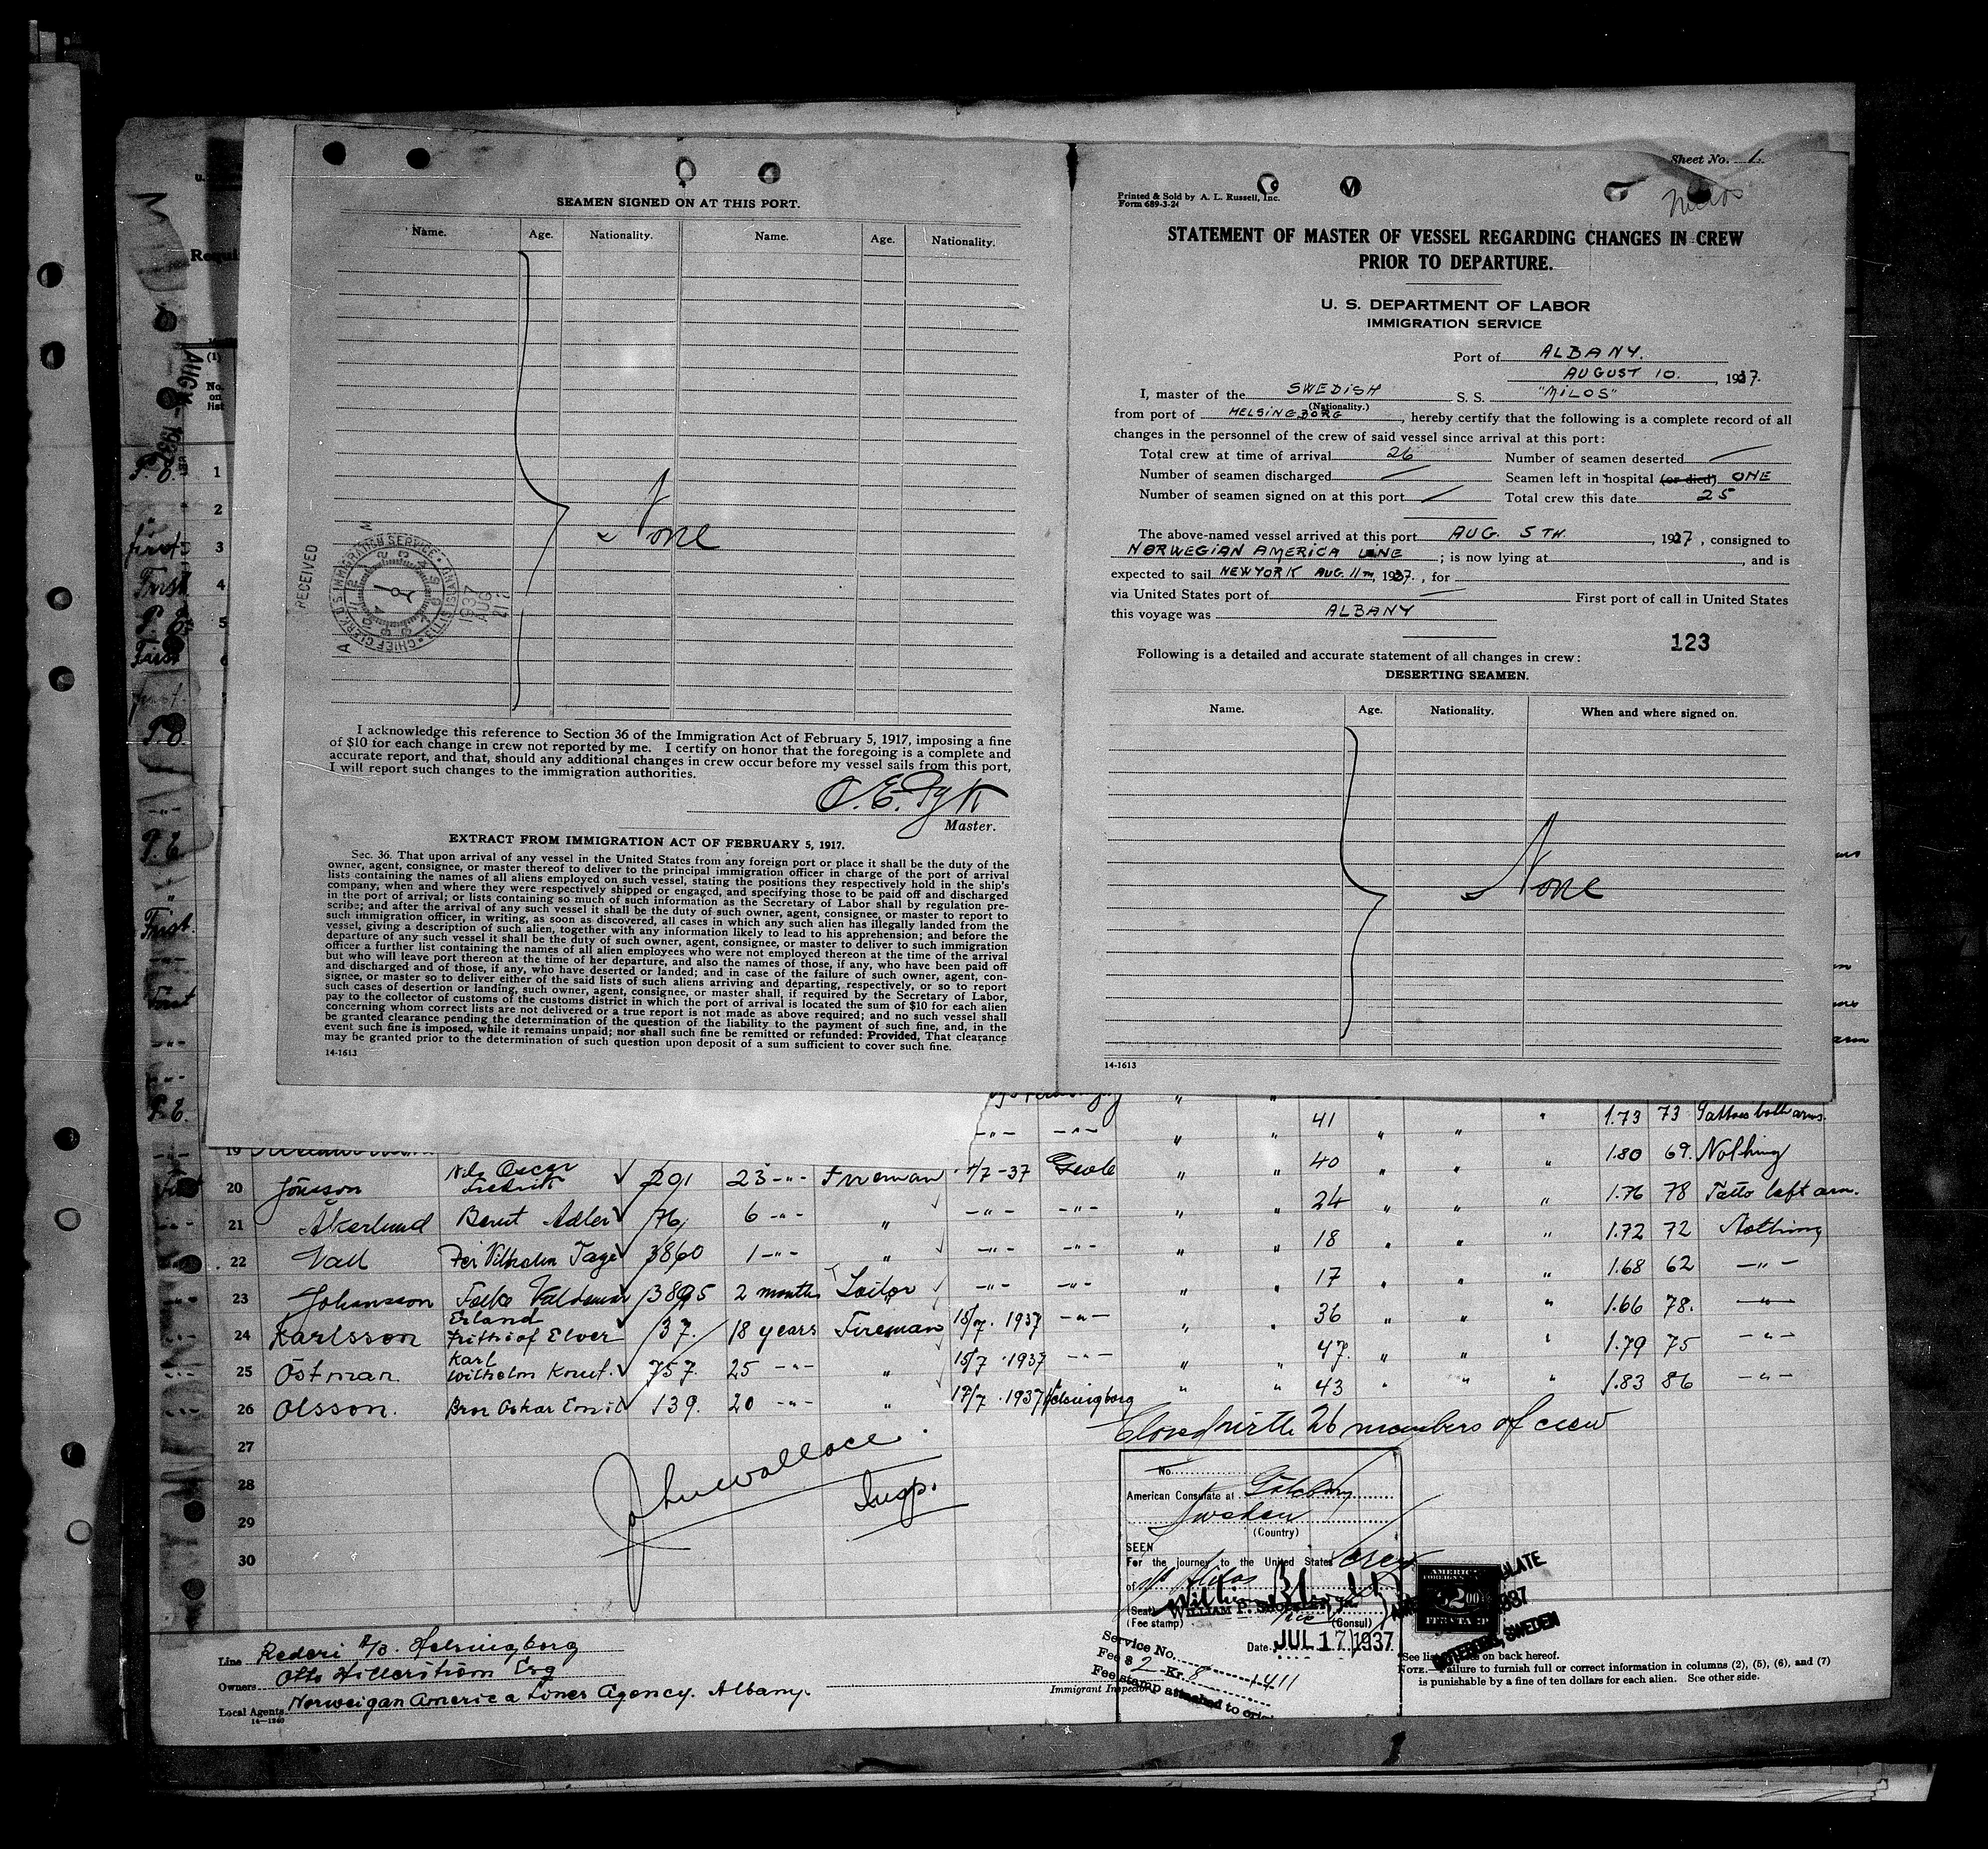 SEAMEN SIGNED ON AT THIS PORT.
Name. Age. Nationality. Name. Age. Nationality.
None
RECEIVED
U.S. IMMIGRATION SERVICE
CHIEF CLERK
1937
AUG
I acknowledge this reference to Section 36 of the Immigration Act of February 5, 1917, imposing a fine
of $10 for each change in crew not reported by me. I certify on honor that the foregoing is a complete and
accurate report, and that, should any additional changes in crew occur before my vessel sails from this port,
I will report such changes to the immigration authorities.
Master.
EXTRACT FROM IMMIGRATION ACT OF FEBRUARY 5, 1917.
Sec. 36. That upon arrival of any vessel in the United States from any foreign port or place it shall be the duty of the
owner, agent, consignee, or master thereof to deliver to the principal immigration officer in charge of the port of arrival
lists containing the names of all aliens employed on such vessel, stating the positions they respectively hold in the ship's
company, when and where they were respectively shipped or engaged, and specifying those to be paid off and discharged
in the port of arrival; or lists containing so much of such information as the Secretary of Labor shall by regulation pre-
scribe; and after the arrival of any such vessel it shall be the duty of such owner, agent, consignee, or master to report to
such immigration officer, in writing, as soon as discovered, all cases in which any such alien has illegally landed from the
vessel, giving a description of such alien, together with any information likely to lead to his apprehension; and before the
departure of any such vessel it shall be the duty of such owner, agent, consignee, or master to deliver to such immigration
officer a further list containing the names of all alien employees who were not employed thereon at the time of the arrival
but who will leave port thereon at the time of her departure, and also the names of those, if any, who have been paid off
and discharged and of those, if any, who have deserted or landed; and in case of the failure of such owner, agent, con-
signee, or master so to deliver either of the said lists of such aliens arriving and departing, respectively, or so to report
such cases of desertion or landing, such owner, agent, consignee, or master shall, if required by the Secretary of Labor,
pay to the collector of customs of the customs district in which the port of arrival is located the sum of $10 for each alien
concerning whom correct lists are not delivered or a true report is not made as above required; and no such vessel shall
be granted clearance pending the determination of the question of the liability to the payment of such fine, and, in the
event such fine is imposed, while it remains unpaid; nor shall such fine be remitted or refunded: Provided, That clearance
may be granted prior to the determination of such question upon deposit of a sum sufficient to cover such fine.
14-1613
Sheet No. 1.
Milos
Printed & Sold by A. L. Russell, Inc.
Form 689-3-24
STATEMENT OF MASTER OF VESSEL REGARDING CHANGES IN CREW
PRIOR TO DEPARTURE.
U. S. DEPARTMENT OF LABOR
IMMIGRATION SERVICE
Port of ALBANY.
AUGUST 10. , 1937.
I, master of the SWEDISH S. S. "MILOS"
(Nationality.)
from port of HELSINGBORG , hereby certify that the following is a complete record of all
changes in the personnel of the crew of said vessel since arrival at this port:
Total crew at time of arrival 26 Number of seamen deserted —
Number of seamen discharged — Seamen left in hospital (or died) ONE
Number of seamen signed on at this port — Total crew this date 25
The above-named vessel arrived at this port AUG. 5TH. , 1937 , consigned to
NORWEGIAN AMERICA LINE ; is now lying at , and is
expected to sail NEWYORK AUG. 11TH, 1937. , for
via United States port of — First port of call in United States
this voyage was ALBANY
123
Following is a detailed and accurate statement of all changes in crew:
DESERTING SEAMEN.
Name. Age. Nationality. When and where signed on.
None
14-1613
Requi
(1)
No. on list
41 1.73 73 Tattoes both arms.
19 40 1.80 69. Nothing
20 Jönsson Nils Oscar Fredrik 291 23 -"- Fireman /7-37 Gevle " " 24 " " " 1.76 78 Tatto left arm.
21 Åkerlund Bernt Adler 76 6 -"- " -"- -"- " " 18 " " " 1.72 72 Nothing
22 Vall Per Vilhelm Tage 3860 1 -"- " -"- -"- " " 17 " " " 1.68 62 -"-
23 Johansson Folke Valdemar 3895 2 months Sailor -"- -"- " " 36 " " " 1.66 78. -"-
24 Karlsson Erland Frithiof Elver 137. 18 years Fireman 15/7. 1937 -"- " " 47. " " " 1.79 75 -"-
25 Östman. Karl Wilhelm Knut. 757. 25 -"- " 15/7. 1937 -"- " " 43 " " " 1.83 86 -"-
26 Olsson. Bror Oskar Emil 139. 20 -"- " 17/7. 1937 Helsingborg
Closed with 26 members of crew
27
28
29
30
John Wallace.
Insp.
No.
American Consulate at Göteborg
Sweden
(Country)
SEEN
For the journey to the United States crew
of s/s Milos
(Seal)
(Fee stamp) (Consul)
Date JUL 17 1937
Service No. 1411
Fee $ 2 - Kr. 8
Fee stamp attached to
GÖTEBORG, SWEDEN
Line Rederi A/B. Helsingborg
Owners Otto Hillerström Esq
Local Agents Norweigan America Lines Agency. Albany.
14-1240
Immigrant Inspector
NOTE.—Failure to furnish full or correct information in columns (2), (5), (6), and (7)
is punishable by a fine of ten dollars for each alien. See other side.